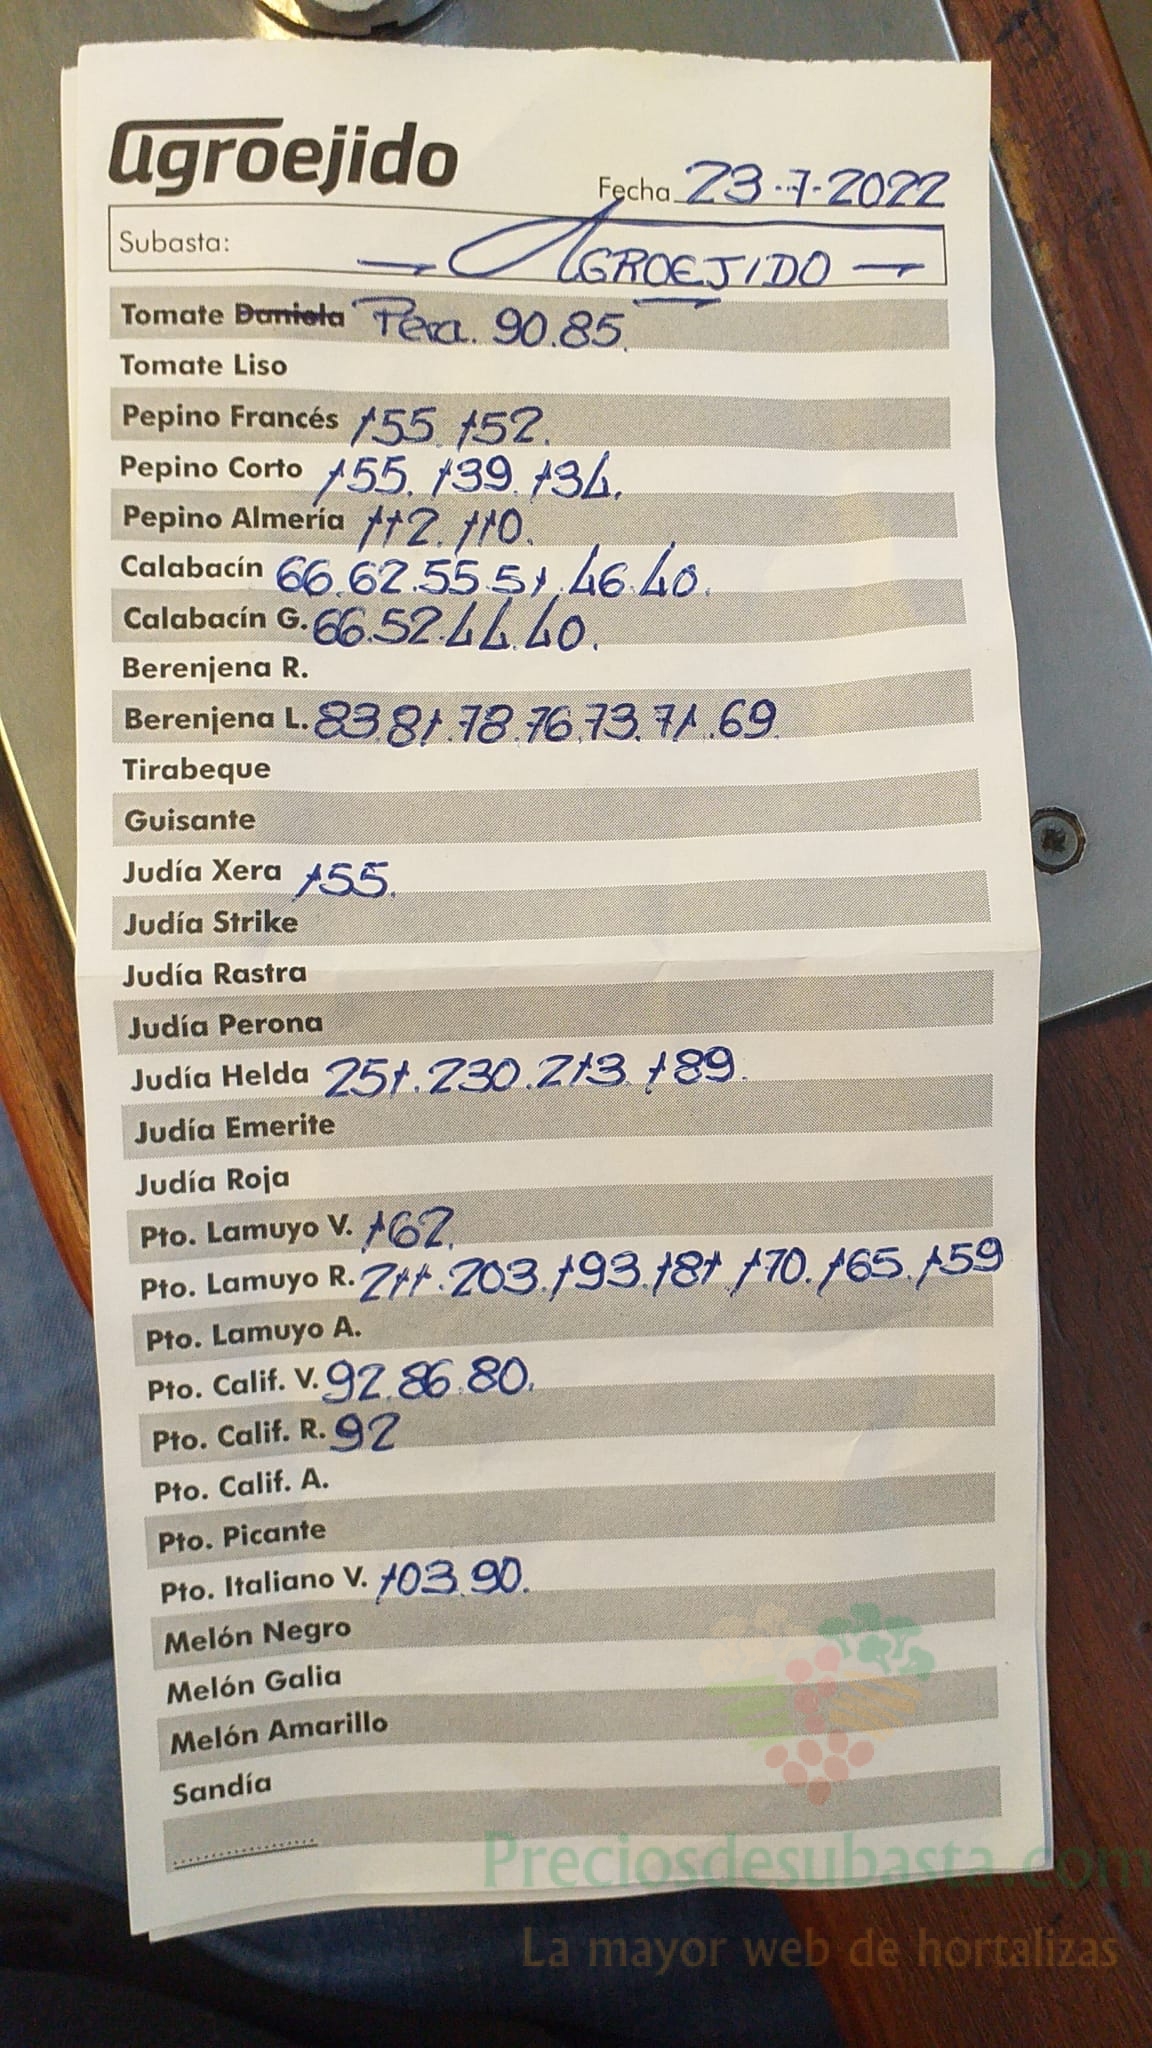 agroejido
Fecha 23-7-2022
Subasta: — AGROEJIDO —
Tomate Daniola Pera. 90.85.
Tomate Liso
Pepino Francés 155.152.
Pepino Corto 155.139.134.
Pepino Almería 112.110.
Calabacín 66.62.55.51.46.40.
Calabacín G. 66.52.44.40.
Berenjena R.
Berenjena L. 83.81.78.76.73.71.69
Tirabeque
Guisante
Judía Xera 155.
Judía Strike
Judía Rastra
Judía Perona
Judía Helda 251.230.213.189.
Judía Emerite
Judía Roja
Pto. Lamuyo V. 162.
Pto. Lamuyo R. 211.203.193.181 170.165.159
Pto. Lamuyo A.
Pto. Calif. V. 92.86.80.
Pto. Calif. R. 92
Pto. Calif. A.
Pto. Picante
Pto. Italiano V. 103.90.
Melón Negro
Melón Galia
Melón Amarillo
Sandía
Preciosdesubasta.com
La mayor web de hortalizas